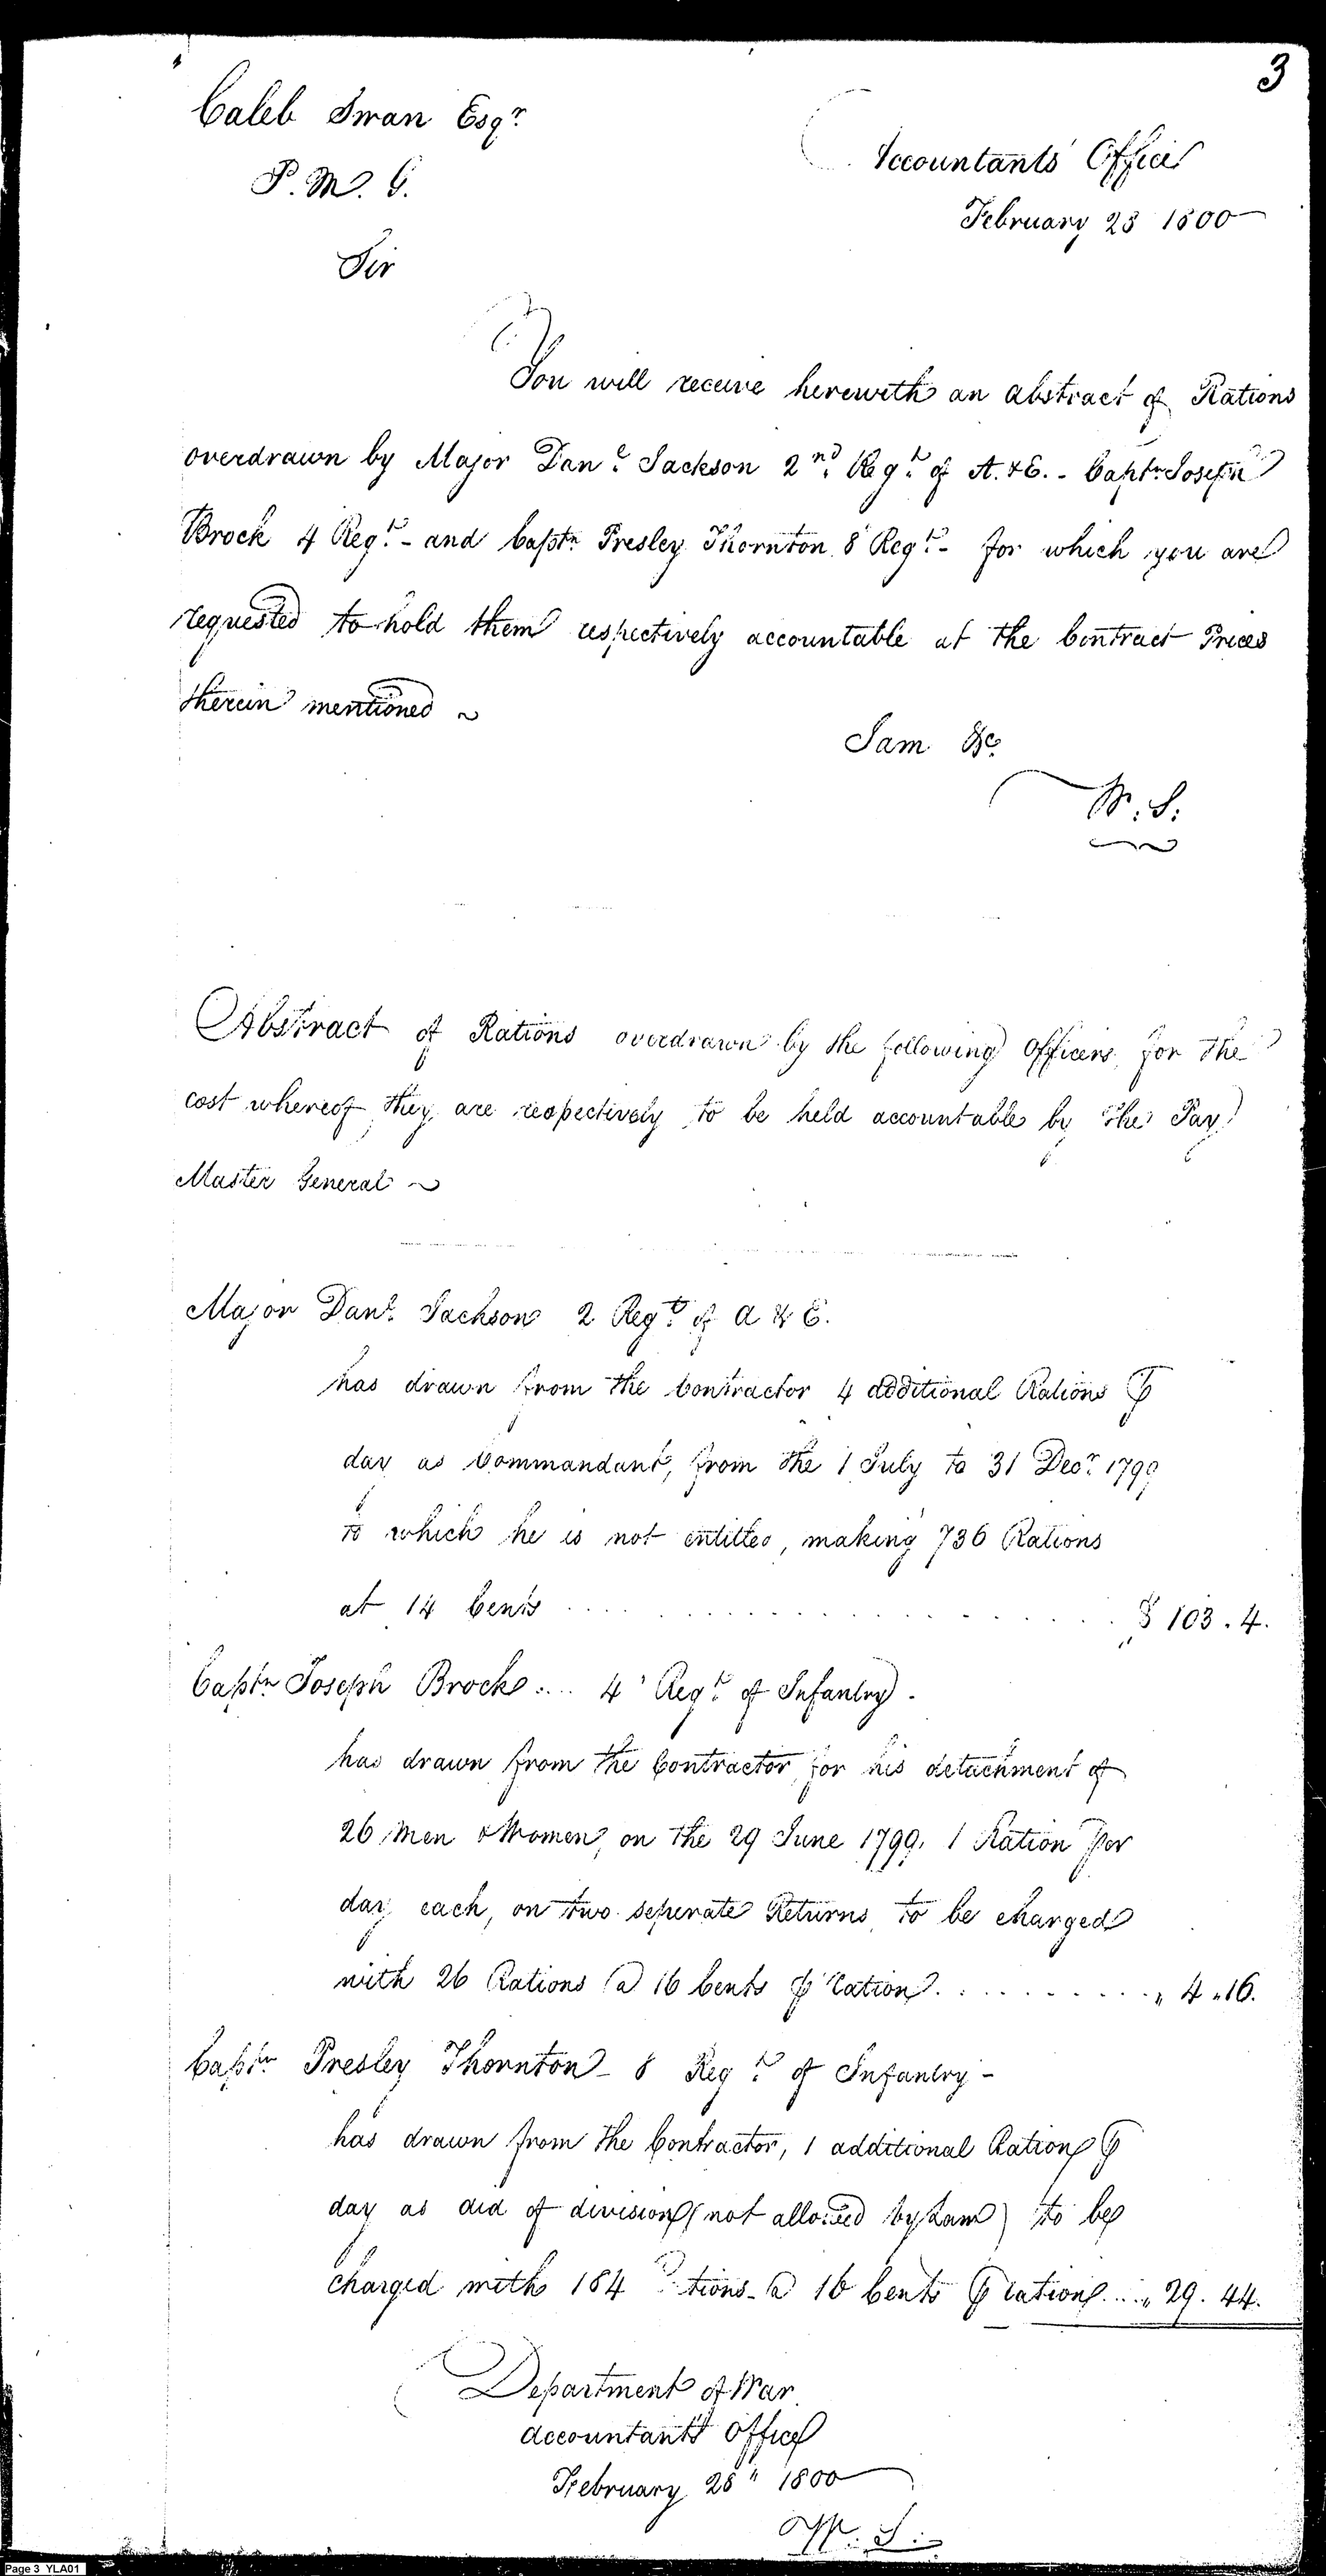 3
Caleb Swan Esqr.
P. M. G.
Accountants Office
February 28 1800
Sir
You will receive herewith an abstract of Rations
overdrawn by Major Danl. Jackson 2nd. Regt. of A. & E. - Captn. Joseph
Brock 4 Regt. - and Captn Presley Thornton 8 Regt. - for which you are
requested to hold them respectively accountable at the Contract Prices
therein mentioned ~
I am &c
W. S.
Abstract of Rations overdrawn by the following Officers, for the
cost whereof they are respectively to be held accountable by the Pay
Master General ~
Major Danl. Jackson 2 Regt. of A & E.
has drawn from the Contractor 4 additional Rations ⅌
day as Commandant, from the 1 July to 31 Decr. 1799
to which he is not entitled, making 736 Rations
at 14 Cents . . . . . . . . . . $ 103 . 4.
Captn Joseph Brock .... 4 Regt. of Infantry.
has drawn from the Contractor for his detachment of
26 Men & Women, on the 29 June 1799, 1 Ration per
day each, on two seperate Returns, to be charged
with 26 Rations @ 16 Cents ⅌ ration . . . . . . . . . . " 4 " 16.
Captn. Presley Thornton - 8 Regt. of Infantry -
has drawn from the Contractor, 1 additional Ration ⅌
day as aid of division (not allowed by Law) to be
charged with 184 tions @ 16 Cents ⅌ ration .... " 29. 44.
Department of War
Accountant's Office
February 28" 1800
W. S.
Page 3 YLA01